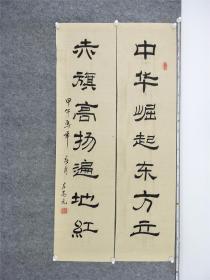 中华崛起东方立
赤旗高扬遍地紅
甲午馬年